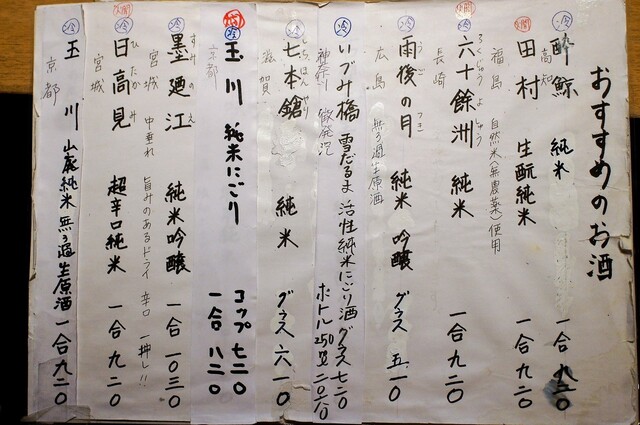 おすすめのお酒
冷
酔鯨 純米 一合 九二〇
高知
燗
田村 生酛純米 一合 九二〇
福島 自然米(無農薬)使用
燗
六十餘洲 純米 一合 九二〇
ろくじゅう よ しゅう
長崎
冷
雨後の月 純米 吟醸 グラス 五一〇
うご つき
広島 無ろ過生原酒
冷
いづみ橋 雪だるま 活性純米にごり酒 グラス 七二〇
神奈川 微発泡 ボトル250
冷
七本鎗 純米 グラス 六一〇
しちほんやり
滋賀
燗
冷
玉川 純米にごり コップ 七二〇
京都 一合 八二〇
冷
墨廼江 純米吟醸 一合 一〇三〇
すみのえ
宮城 中垂れ 旨みのあるドライ 辛口 一押し!!
燗
日高見 超辛口純米 一合 九二〇
ひたかみ
宮城
冷
玉川 山廃純米 無ろ過生原酒 一合 九二〇
京都